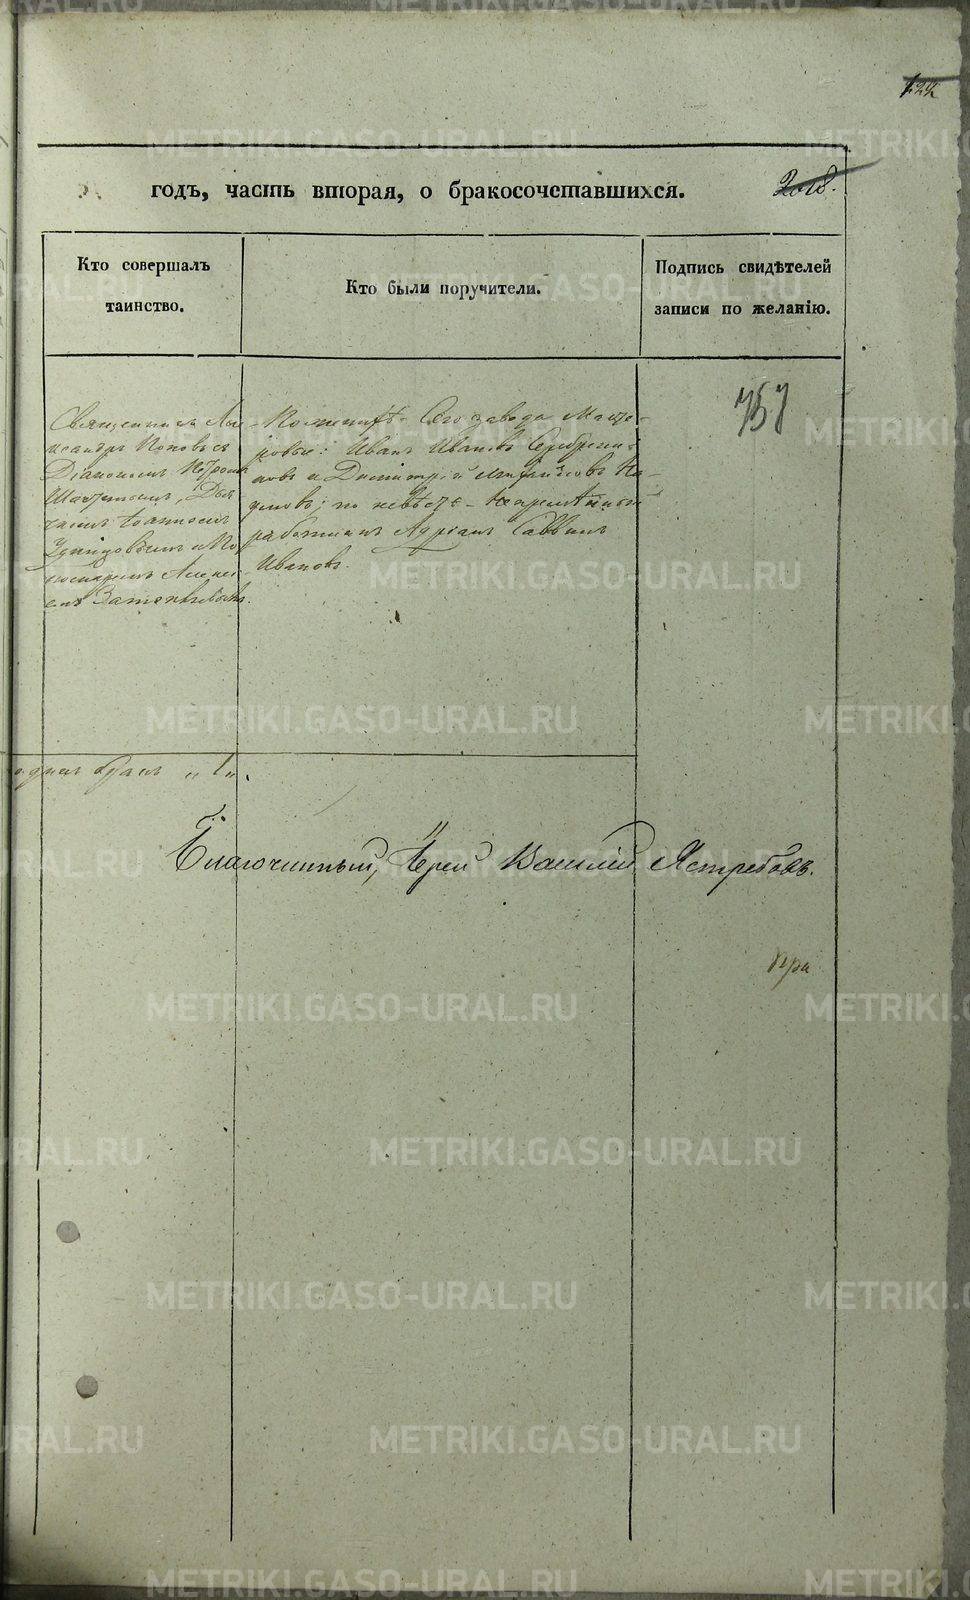 122
годъ, часть вторая, о бракосочетавшихся.
2018.
Кто совершалъ
таинство.
Кто были поручители.
Подпись свидѣтелей
записи по желанію.
757
Священникъ Але-
ксандръ Поповъ съ
Діакономъ Петромъ
Дья-
чкомъ Іоанномъ
и По-
номаремъ Алексѣ-
емъ
По женихѣ: Сего завода Масте-
ровые: Иванъ Ивановъ
и Димитрій На-
умовъ; по невѣстѣ
работникъ Адріанъ Саввинъ
Ивановъ.
бракъ „1„.
Благочинный, Іерей Василій Ястребовъ.
При
METRIKI.GASO-URAL.RU